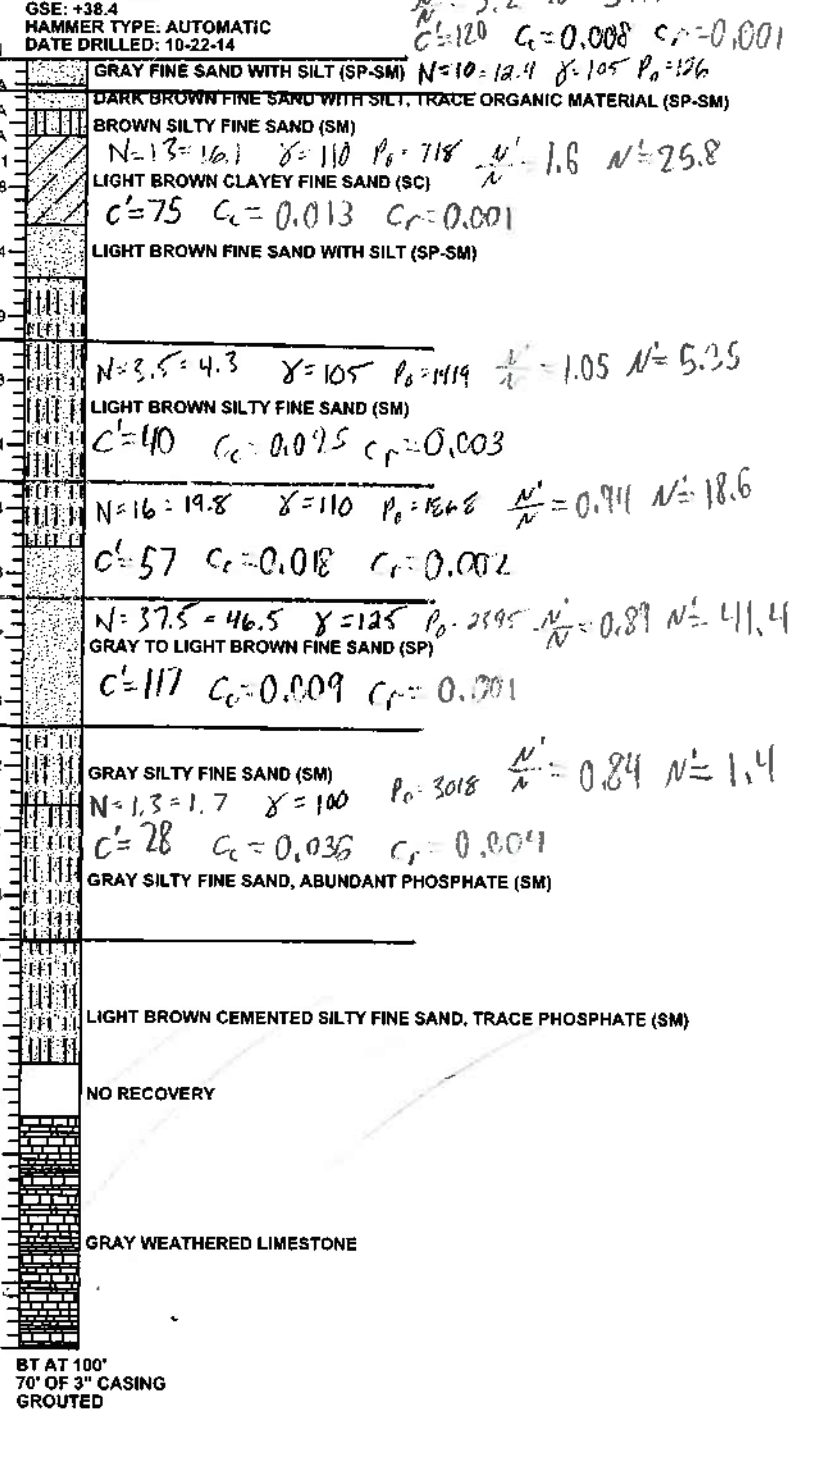 GSE: +38.4
HAMMER TYPE: AUTOMATIC
DATE DRILLED: 10-22-14
C'=120 Cc=0.008 Cr=0.001
GRAY FINE SAND WITH SILT (SP-SM) N=10=12.4 γ=105 P₀=126
DARK BROWN FINE SAND WITH SILT, TRACE ORGANIC MATERIAL (SP-SM)
BROWN SILTY FINE SAND (SM)
N=13=16.1 γ=110 P₀=718 N'/N=1.6 N'=25.8
LIGHT BROWN CLAYEY FINE SAND (SC)
C'=75 Cc=0.013 Cr=0.001
LIGHT BROWN FINE SAND WITH SILT (SP-SM)
N=3.5=4.3 γ=105 P₀=1419 N'/N=1.05 N'=
LIGHT BROWN SILTY FINE SAND (SM)
C'=40 Cc=0.025 Cr=0.003
N=16=19.8 γ=110 P₀= N'/N=0.94 N'=18.6
C'=57 Cc=0.018 Cr=0.002
N=37.5=46.5 γ=125 P₀=2395 N'/N=0.89 N'=41.4
GRAY TO LIGHT BROWN FINE SAND (SP)
C'=117 Cc=0.009 Cr=0.001
GRAY SILTY FINE SAND (SM)
N=1.3=1.7 γ=100 P₀=3018 N'/N=0.84 N'=1.4
C'=28 Cc=0.036 Cr=0.004
GRAY SILTY FINE SAND, ABUNDANT PHOSPHATE (SM)
LIGHT BROWN CEMENTED SILTY FINE SAND, TRACE PHOSPHATE (SM)
NO RECOVERY
GRAY WEATHERED LIMESTONE
BT AT 100'
70' OF 3" CASING
GROUTED